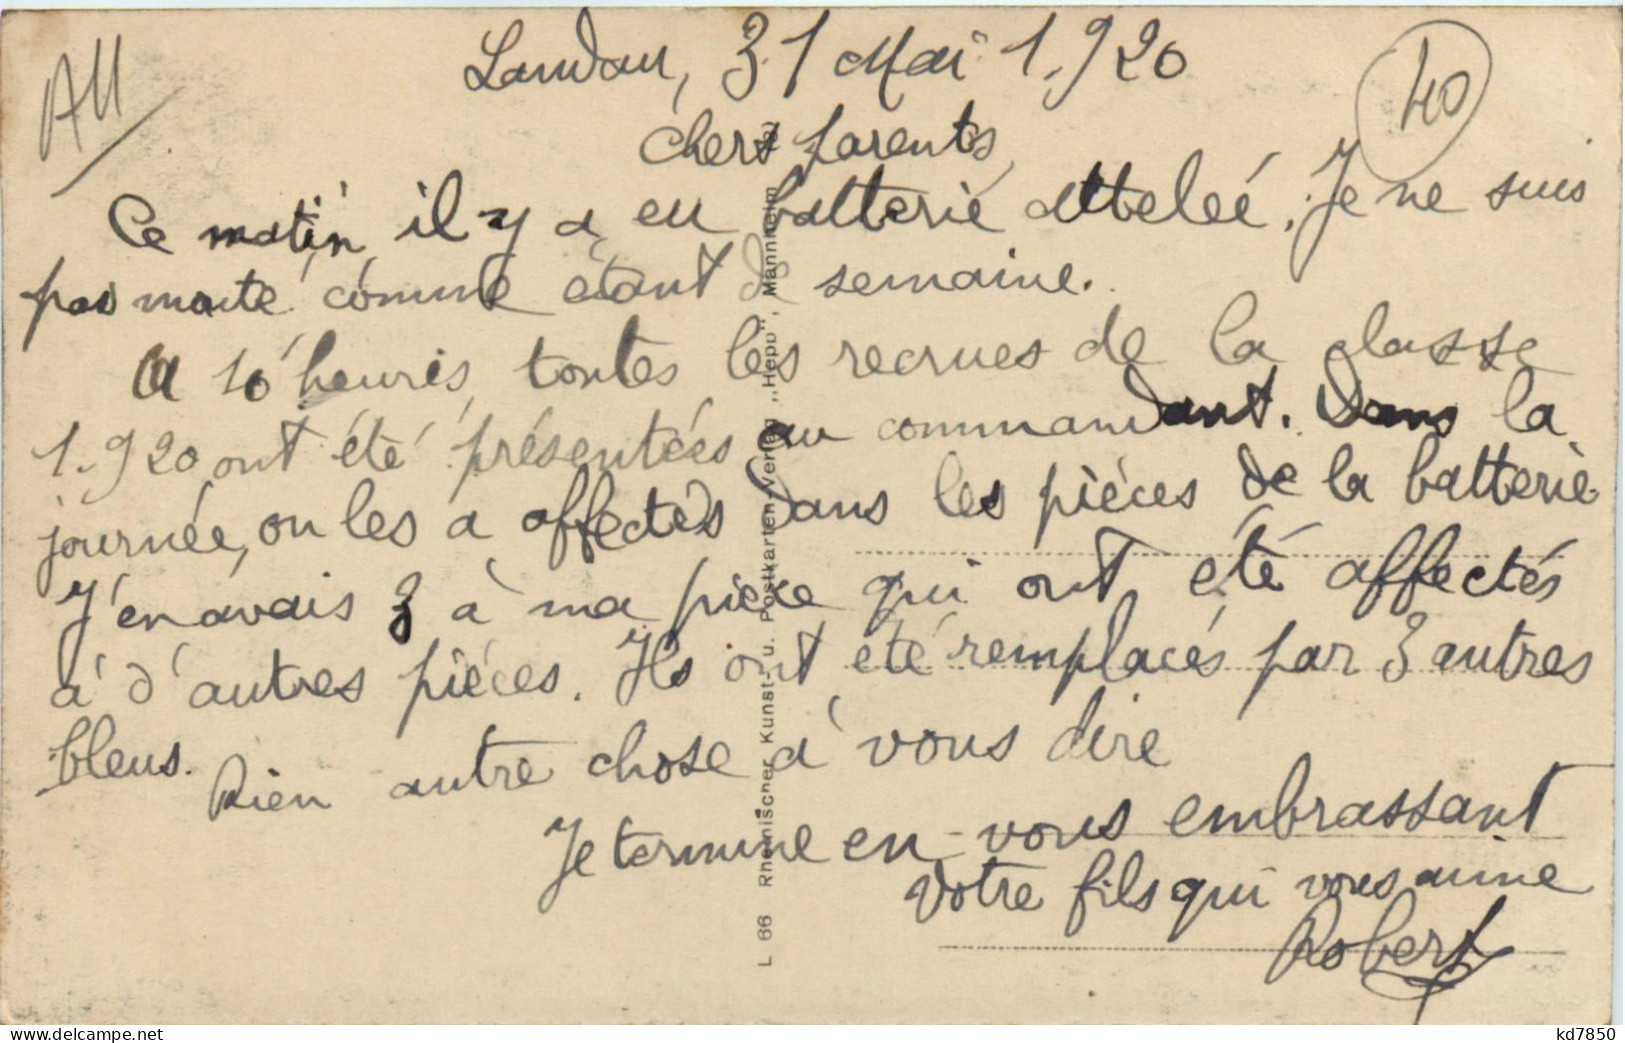 All
40
Landau, 31 Mai 1.920
Chers parents,
Ce matin, il y a eu batterie attelée. Je ne suis
pas monté comme étant de semaine.
A 10 heures, toutes les recrues de la classe
1.920 ont été présentées au commandant. Dans la
journée, on les a affectés dans les pièces de la batterie
J'en avais 3 à ma pièce qui ont été affectés
à d'autres pièces. Ils ont été remplacés par 3 autres
bleus.
Rien autre chose à vous dire
Je termine en vous embrassant
Votre fils qui vous aime
Robert
L 66 Rheinischer Kunst- u. Postkarten-Verlag „Hepu", Mannheim
www.delcampe.net
kd7850